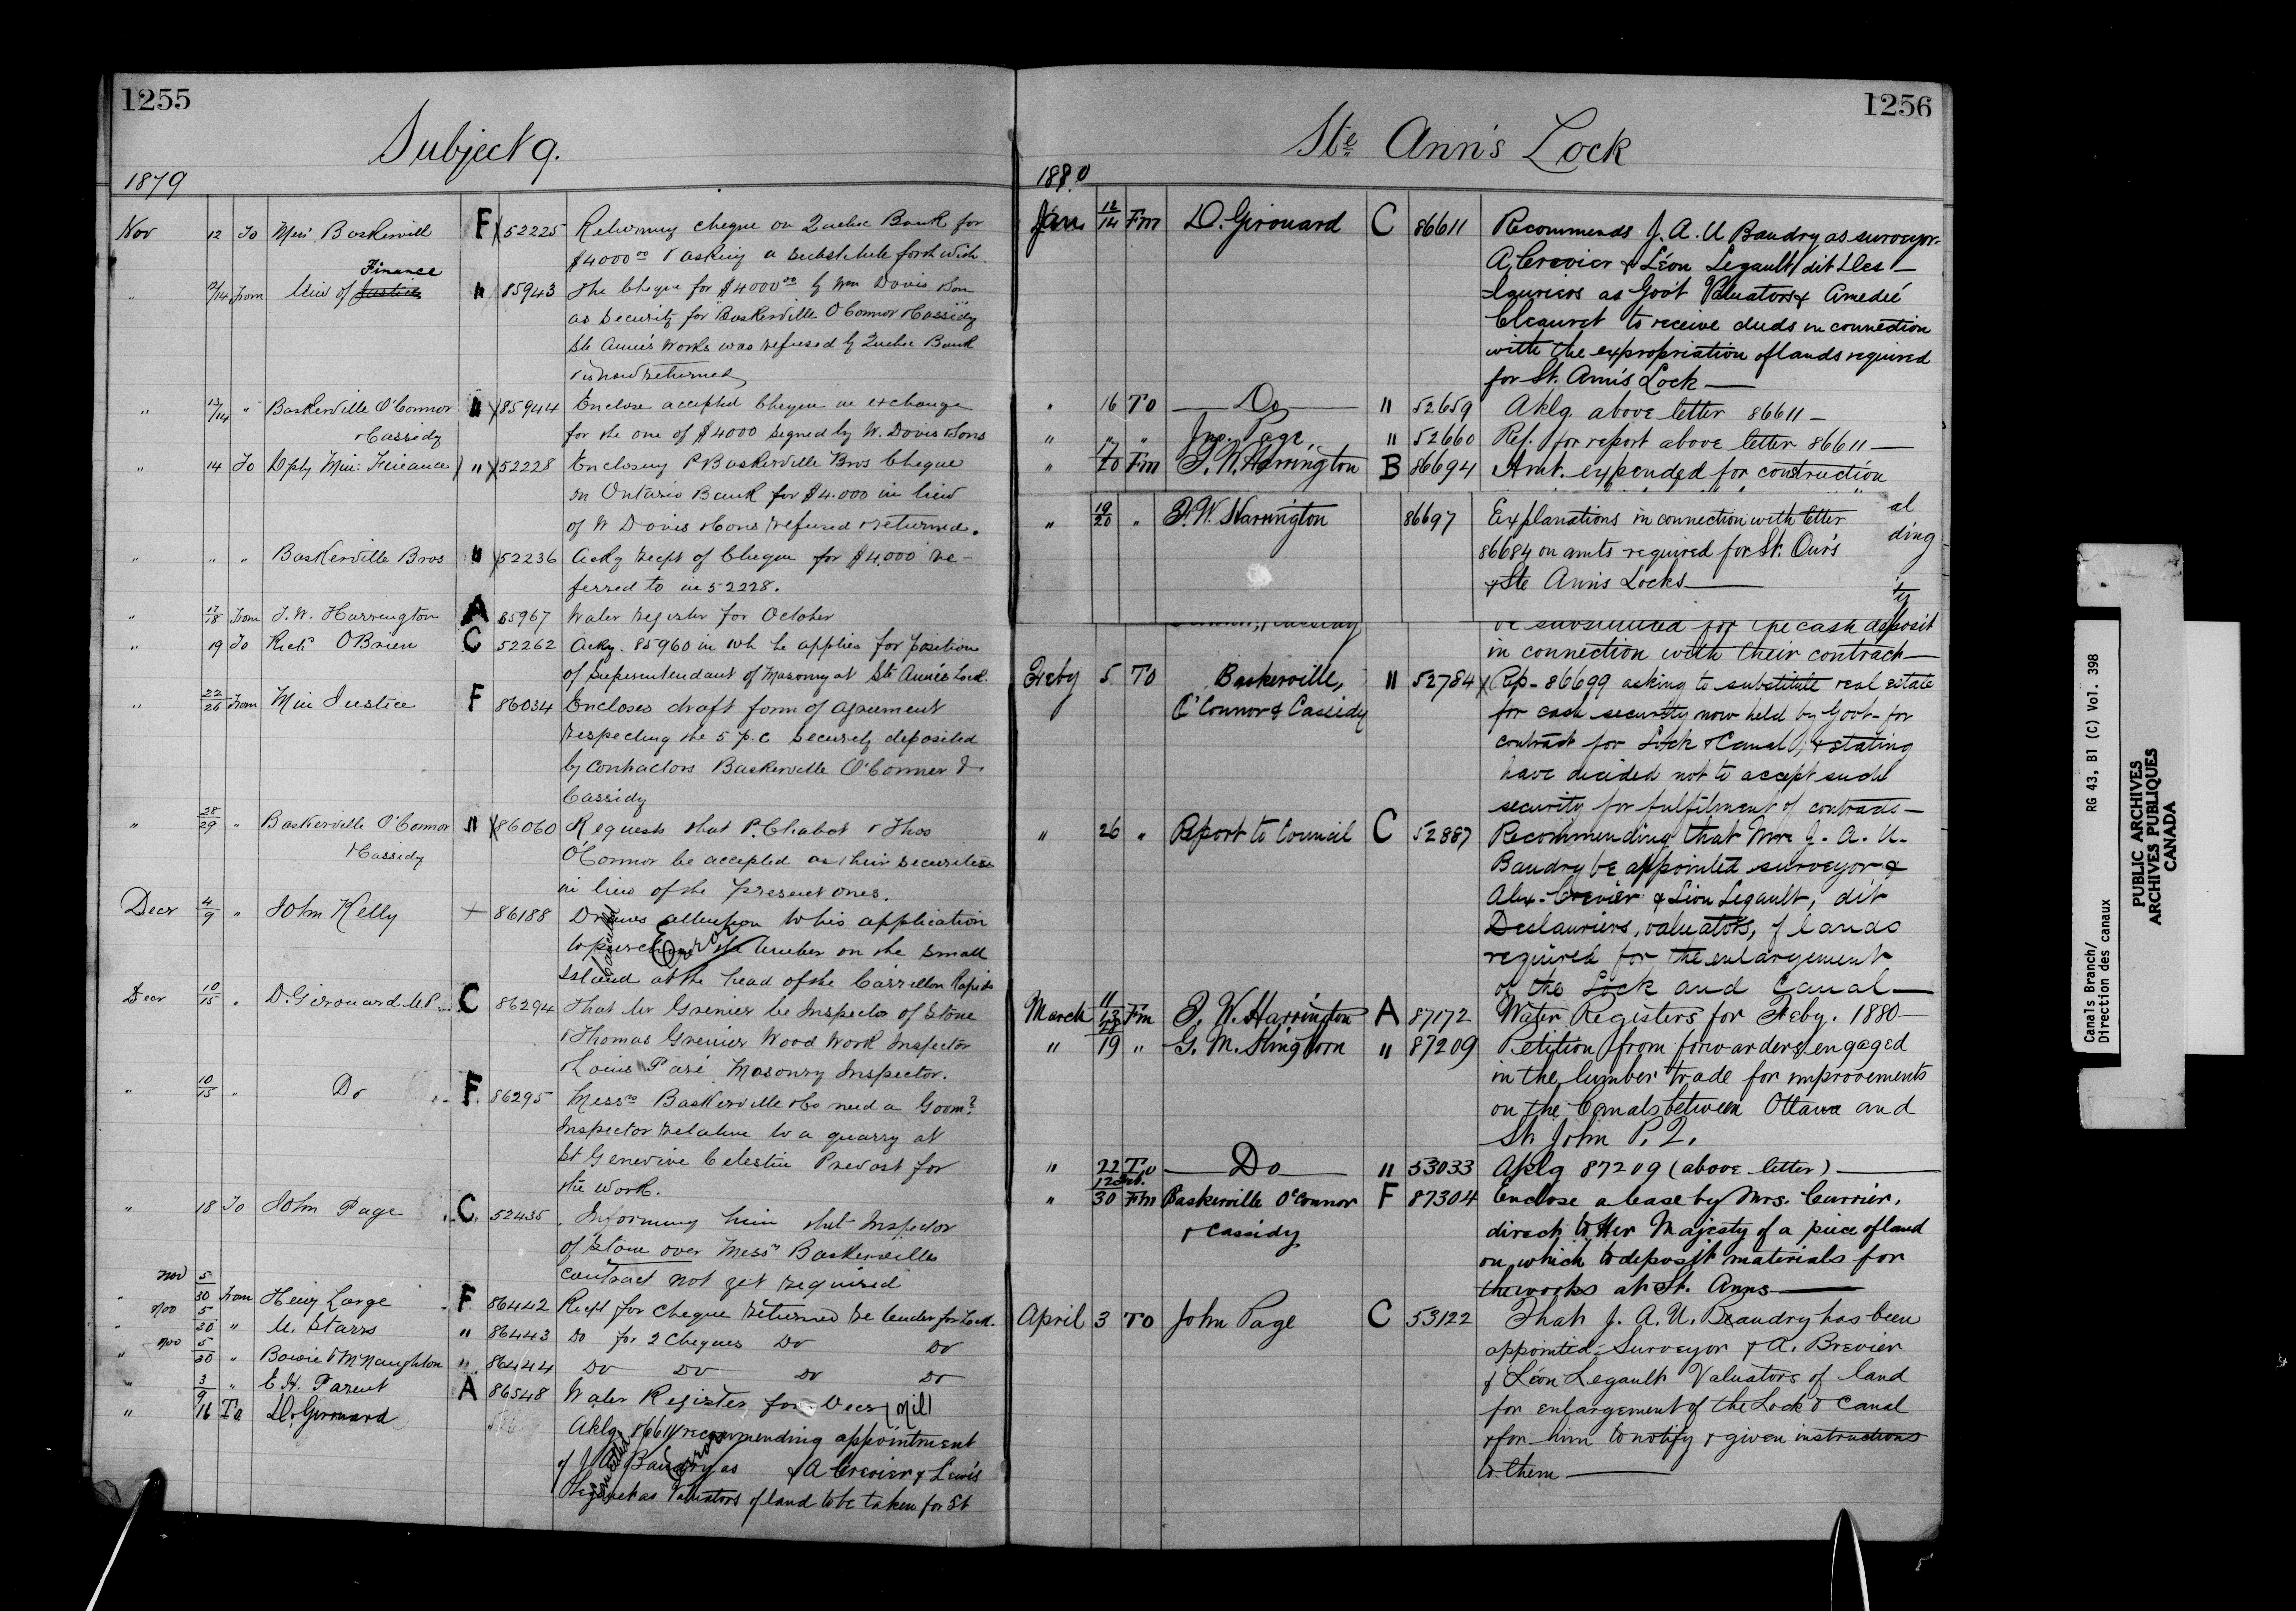 1255
Subject 9.
1879
Nov 12 To Mess. Baskervill F 52225 Returning cheque on Quebec Bank for
$4000 00 & asking a substitute forthwith.
Finance
" 12/14 From Min of Justice " 85943 The Cheque for $4000 00 by Wm Davis & Son
as security for Baskerville O'Connor & Cassidy
Ste Anne's Works was refused by Quebec Bank
& is now returned
" 13/14 " Baskerville O'Connor " 85944 Enclose accepted Cheque in exchange
& Cassidy for the one of $4000 signed by W. Davis & Sons
" 14 To Dpty Min: Finance " 52228 Enclosing P Baskerville Bros Cheque
on Ontario Bank for $4.000 in lieu
of W Davis & Sons refused & returned.
" " " Baskerville Bros " 52236 Ackg recpt of Cheque for $4,000 re-
ferred to in 52228.
" 17/18 From T. W. Harrington A 85967 Water register for October
" 19 To Richd O'Brien C 52262 Ackg. 85960 in wh he applies for position
of Superintendant of Masonry at Ste Anne's Lock.
" 22/26 From Min Justice F 86034 Encloses draft form of agreement
respecting the 5 p.c security deposited
by contractors Baskerville O'Connor &
Cassidy
" 28/29 " Baskerville O'Connor " 86060 Requests that P. Chabot & Thos
& Cassidy O'Connor be accepted as their securities
in lieu of the present ones.
Decr 4/9 " John Kelly + 86188 Draws attention to his application
to purchase the timber on the small
Island at the head of the Carrillon Rapids
Cancelled Error
Decr 10/15 " D. Girouard M.P. C 86294 That Mr Grenier be Inspector of Stone
& Thomas Grenier Wood Work Inspector
& Louis Paré Masonry Inspector.
" 10/15 " Do F. 86295 Messrs Baskerville & Co need a Govmt
Inspector relative to a quarry at
St Genevive Celestin Prevost for
the work.
" 18 To John Page C. 52435 Informing him that Inspector
of Stone over Messrs Baskervilles
contract not yet required
" Nov 5/30 From Henry Large F 86442 Recpt for cheque returned re tender for Lock.
" Nov 5/30 " M. Starrs " 86443 Do for 2 Cheques Do Do
" Nov 5/30 " Bowie & McNaughton " 86444 Do Do Do Do
" 3/9 " E. H. Parent A 86548 Water Register for Decr (Nil)
" 16 To D. Girouard Aklg. 86611 recommending appointment
of J. A. U Baudry as & A Crevier & Lewis
Legault as Valuators of land to be taken for St
Cancelled Error
1256
Ste Ann's Lock
1880
Jan 12/14 Fm D. Girouard C 86611 Recommends J. A. U Baudry as surveyor.
A. Crevier & Léon Legault dit Des-
lauriers as Gov't Valuators & Amedié
to receive deeds in connection
with the expropriation of lands required
for St. Ann's Lock—
" 16 To Do " 52659 Aklg. above letter 86611—
" " " Jno. Page, " 52660 Ref. for report above letter 86611—
" 17/20 Fm T. W. Harrington B 86694 Amt. expended for construction
" 19/20 " T. W. Harrington 86697 Explanations in connection with letter al
86684 on amts required for St. Our's ding
& Ste Ann's Locks—
ty
be substituted for the cash deposit
in connection with their contract—
Feby 5 To Baskerville, " 52784 Rep- 86699 asking to substitute real estate
O'Connor & Cassidy for cash security now held by Govt. for
contract for Lock & Canal, & stating
have decided not to accept such
security for fulfilment of contracts—
" 26 " Report to Council C 52887 Recommending that Mr J. A. U.
Baudry be appointed surveyor &
Alex. Crevier & Léon Legault, dit
Deslauriers, valuators, of lands
required for the enlargement
of the Lock and Canal—
March 11/13 Fm T. W. Harrington A 87172 Water Registers for Feby. 1880—
" 18/19 " G. M. Kingdon " 87209 Petition from forwarders engaged
in the lumber trade for improvements
on the Canals between Ottawa and
St. John P. Q.
" 22 To Do " 53033 Aklg 87209 (above letter)—
" 12 Feb./30 Fm Baskerville O'Connor F 87304 Enclose a lease by Mrs. Currier,
& Cassidy direct to Her Majesty of a piece of land
on which to deposit materials for
the works at St. Anns—
April 3 To John Page C 53122 That J. A. U. Beaudry has been
appointed Surveyor & A. Brevier
& Léon Legault Valuators of land
for enlargement of the Lock & Canal
& for him to notify & given instructions
to them—
Canals Branch/ RG 43, B1 (C) Vol. 398
Direction des canaux
PUBLIC ARCHIVES
ARCHIVES PUBLIQUES
CANADA